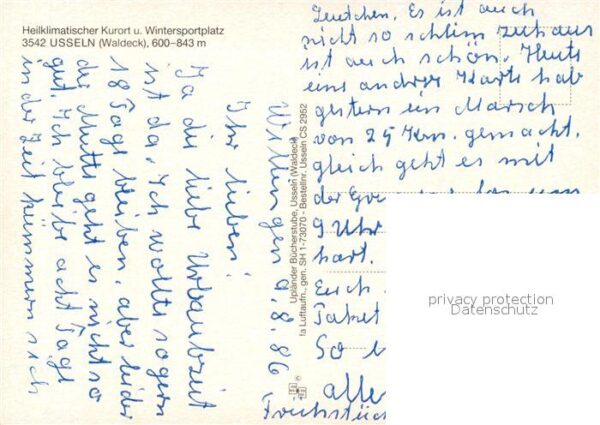 Heilklimatischer Kurort u. Wintersportplatz
3542 USSELN (Waldeck), 600–843 m
Willingen 9.8.86
Ihr lieben!
Ja die liebe Urlaubzeit
ist da. Ich wollte so gern
18 Tage bleiben, aber leider
der Mutti geht es nicht so
gut. Ich bleibe acht Tage
in der Zeit kümmern sich
Upländer Bücherstube, Usseln (Waldeck)
fa Luftaufn., gen. SH 1-73070 - Bestellnr. Usseln CS 2952
Leutchen. Es ist auch
nicht so schlim zuhaus
ist auch schön. Heute
eine andre Karte hab
gestern ein Marsch
von 25 Km. gemacht.
gleich geht es mit
der
9 Uhr
hart.
Euch
Paket
So
alle
Frühstück
privacy protection
Datenschutz